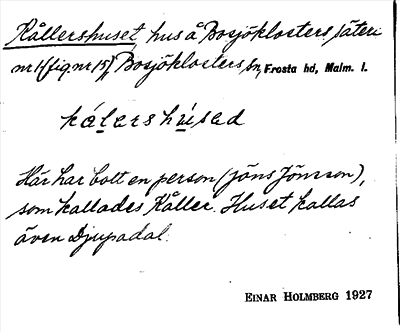 Kållershuset, hus å Bosjöklosters säteri
nr 1 (fig. nr 15), Bosjöklosters sn, Frosta hd, Malm. l.
kålershúsad
Här har bott en person (Jöns Jönsson),
som kallades Kåller. Huset kallas
även Djupadal.
EINAR HOLMBERG 1927